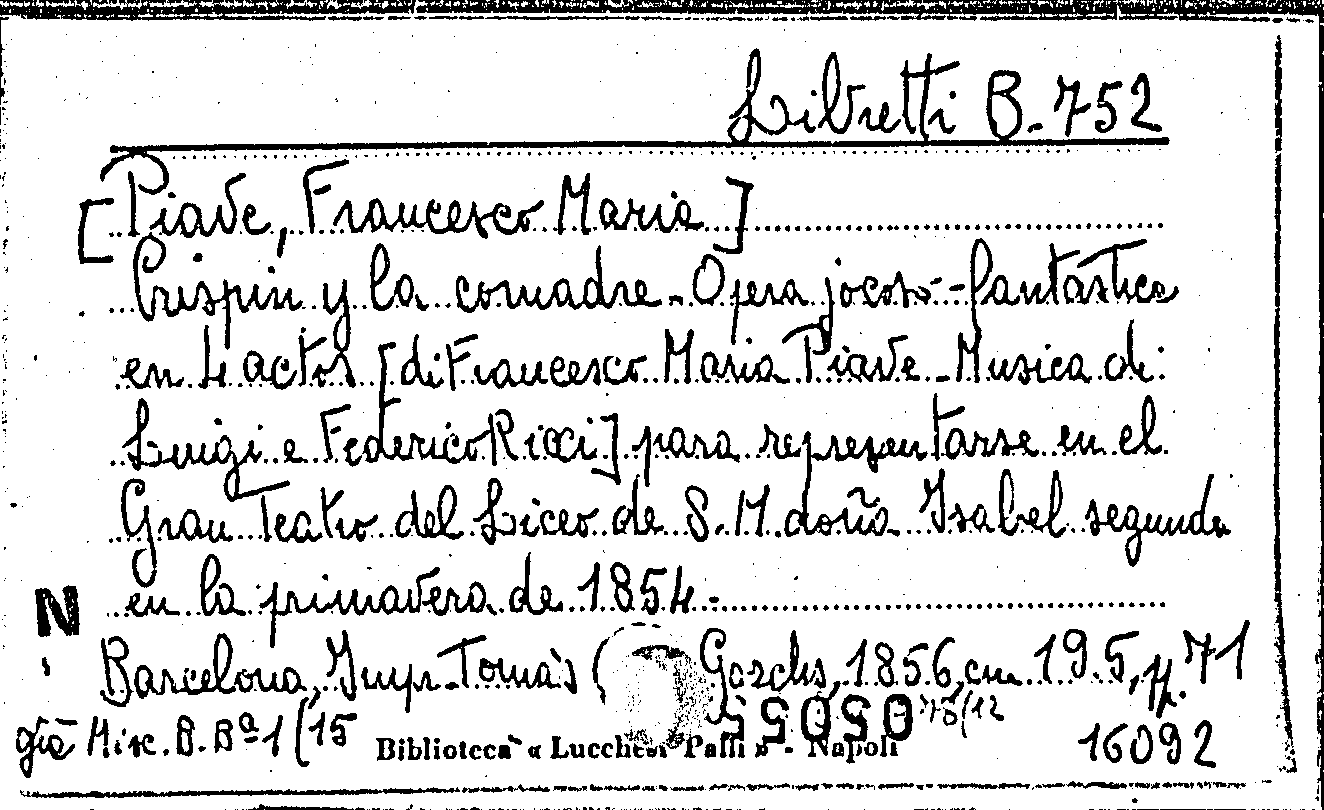 Libretti B. 752
[Piave, Francesco Maria]
Crispin y la comadre - Opera jocoso-fantástica
en 4 actos [di Francesco Maria Piave - Musica di
Luigi e Federico Ricci] para representarse en el
Gran Teatro del Liceo de S.M. doña Isabel segunda
en la primavera de 1854 -
N
Barcelona, Impr. Tomàs ( Gorchs, 1856, cm. 19.5, p. 71
già Misc. B. Bª 1 (15
Biblioteca « Lucchesi Palli » - Napoli
16092